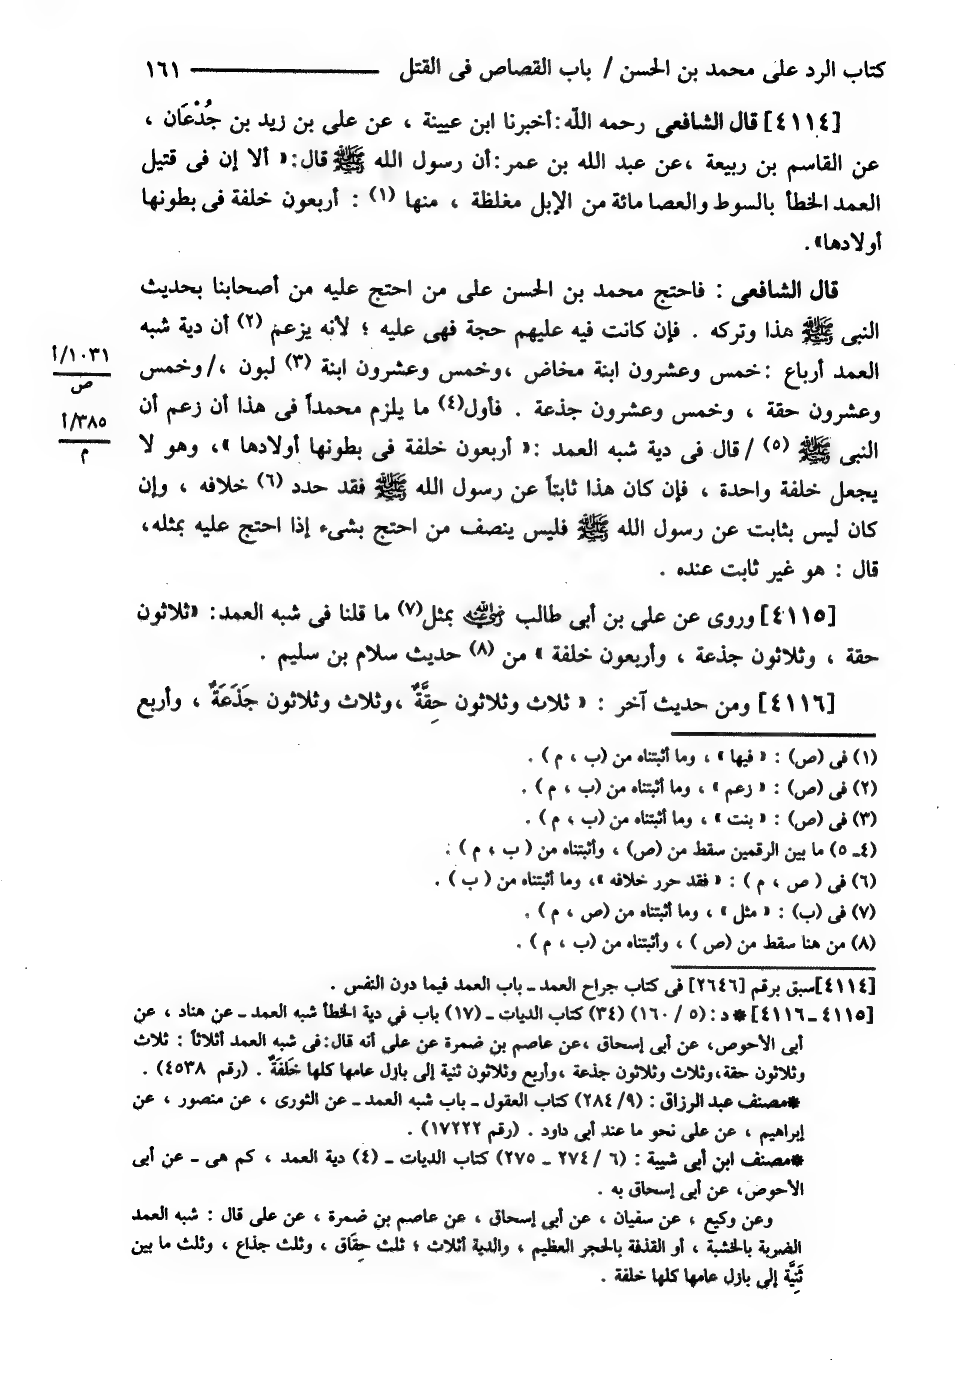 كتاب الرد على محمد بن الحسن / باب القصاص فى القتل ــــــــــــ ١٦١
[٤١١٤] قال الشافعى رحمه الله : أخبرنا ابن عيينة ، عن على بن زيد بن جُدْعَان ،
عن القاسم بن ربيعة ، عن عبد الله بن عمر : أن رسول الله ﷺ قال : « ألا إن فى قتيل
العمد الخطأ بالسوط والعصا مائة من الإبل مغلظة ، منها (١) : أربعون خلفة فى بطونها
أولادها » .
قال الشافعى : فاحتج محمد بن الحسن على من احتج عليه من أصحابنا بحديث
النبى ﷺ هذا وتركه . فإن كانت فيه عليهم حجة فهى عليه ؛ لأنه يزعم (٢) أن دية شبه
العمد أرباع : خمس وعشرون ابنة مخاض ، وخمس وعشرون ابنة (٣) لبون ، / وخمس
١٠٣١/أ
ص
وعشرون حقة ، وخمس وعشرون جذعة . فأول (٤) ما يلزم محمداً فى هذا أن زعم أن
النبى ﷺ (٥) / قال فى دية شبه العمد : « أربعون خلفة فى بطونها أولادها » ، وهو لا
٣٨٥/أ
م
يجعل خلفة واحدة ، فإن كان هذا ثابتاً عن رسول الله ﷺ فقد حدد (٦) خلافه ، وإن
كان ليس بثابت عن رسول الله ﷺ فليس ينصف من احتج بشىء إذا احتج عليه بمثله ،
قال : هو غير ثابت عنده .
[٤١١٥] وروى عن على بن أبى طالب رضي الله عنه بمثل (٧) ما قلنا فى شبه العمد : «ثلاثون
حقة ، وثلاثون جذعة ، وأربعون خلفة » من (٨) حديث سلام بن سليم .
[٤١١٦] ومن حديث آخر : « ثلاث وثلاثون حِقَّةٌ ، وثلاث وثلاثون جَذَعَةٌ ، وأربع
(١) فى (ص) : « فيها » ، وما أثبتناه من (ب ، م ) .
(٢) فى (ص) : « زعم » ، وما أثبتناه من (ب ، م ) .
(٣) فى (ص) : « بنت » ، وما أثبتناه من (ب ، م ) .
(٤ـ ٥) ما بين الرقمين سقط من (ص) ، وأثبتناه من ( ب ، م ) .
(٦) فى ( ص ، م ) : « فقد حرر خلافه » ، وما أثبتناه من ( ب ) .
(٧) فى (ب) : « مثل » ، وما أثبتناه من (ص ، م ) .
(٨) من هنا سقط من (ص ) ، وأثبتناه من (ب ، م ) .
[٤١١٤] سبق برقم [٢٦٤٦] فى كتاب جراح العمد ـ باب العمد فيما دون النفس .
[٤١١٥ ـ ٤١١٦] * د : (٥ / ١٦٠) (٣٤) كتاب الديات ـ (١٧) باب في دية الخطأ شبه العمد ـ عن هناد ، عن
أبى الأحوص، عن أبى إسحاق ، عن عاصم بن ضمرة عن على أنه قال : فى شبه العمد أثلاثاً : ثلاث
وثلاثون حقة ، وثلاث وثلاثون جذعة ، وأربع وثلاثون ثنية إلى بازل عامها كلها خَلِفَةٌ . (رقم ٤٥٣٨) .
* مصنف عبد الرزاق : (٩/ ٢٨٤) كتاب العقول ـ باب شبه العمد ـ عن الثورى ، عن منصور ، عن
إبراهيم ، عن على نحو ما عند أبى داود . (رقم ١٧٢٢٢) .
* مصنف ابن أبى شيبة : (٦ / ٢٧٤ ـ ٢٧٥) كتاب الديات ـ (٤) دية العمد ، كم هى ـ عن أبى
الأحوص، عن أبى إسحاق به .
وعن وكيع ، عن سفيان ، عن أبى إسحاق ، عن عاصم بن ضمرة ، عن على قال : شبه العمد
الضربة بالخشبة ، أو القذفة بالحجر العظيم ، والدية أثلاث ؛ ثلث حِقَاق ، وثلث جذاع ، وثلث ما بين
ثَنِيَّة إلى بازل عامها كلها خلفة .